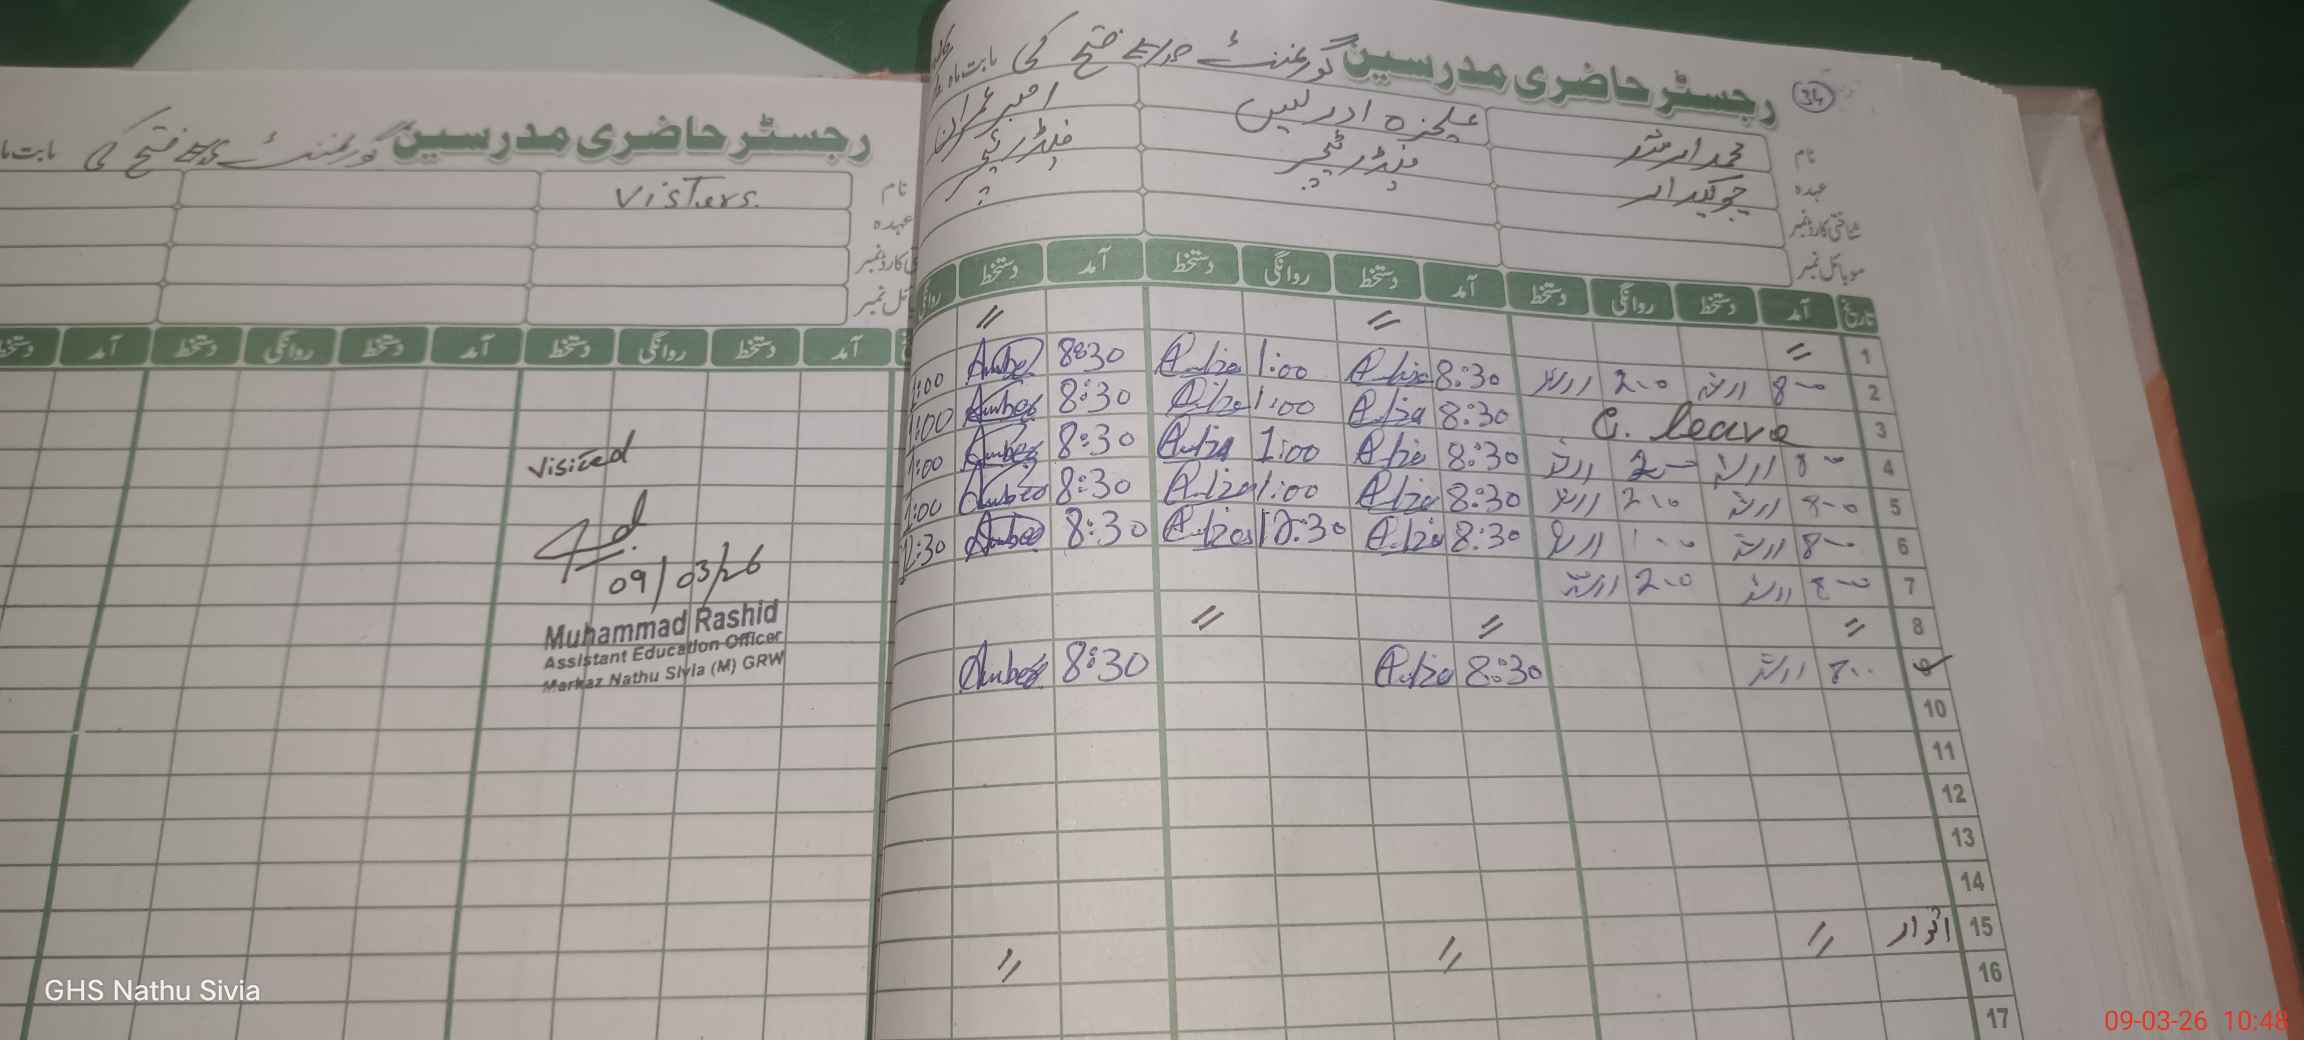 رجسٹر حاضری مدرسین گورنمنٹ فتح کی بابت ماہ
34
نام محمد ارشد علیزہ ادریس امبر عمران
عہدہ چوکیدار فیڈر ٹیچر فیڈر ٹیچر
شناختی کارڈ نمبر
موبائل نمبر
تاریخ آمد دستخط روانگی دستخط آمد دستخط روانگی دستخط آمد دستخط روانگی
1 〃 〃 〃
2 8-00 ارشد 2-0 ارشد 8:30 Aliza 1:00 Aliza 8:30 Amber 1:00
3 C. leave 8:30 Aliza 1:00 Aliza 8:30 Amber 1:00
4 8-00 ارشد 2-00 ارشد 8:30 Aliza 1:00 Aliza 8:30 Amber 1:00
5 8-0 ارشد 2-0 ارشد 8:30 Aliza 1:00 Aliza 8:30 Amber 1:00
6 8-00 ارشد 1-00 ارشد 8:30 Aliza 12:30 Aliza 8:30 Amber 12:30
7 8-00 ارشد 2-0 ارشد
8 〃 〃 〃
8-00 ارشد 8:30 Aliza 8:30 Amber
10
11
12
13
14
15 اتوار 〃 〃 〃
16
17
رجسٹر حاضری مدرسین گورنمنٹ فتح کی بابت ما
نام Visters.
عہدہ
کارڈ نمبر
نمبر
آمد دستخط روانگی دستخط آمد دستخط روانگی دستخط آمد دستخط
Visited
09/03/26
Muhammad Rashid
Assistant Education Officer
Markaz Nathu Sivia (M) GRW
GHS Nathu Sivia
09-03-26 10:48